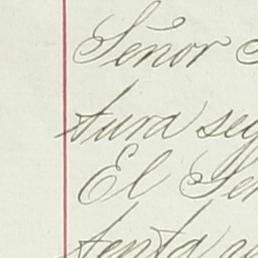 Señor
tura seg
El Señ
tenta